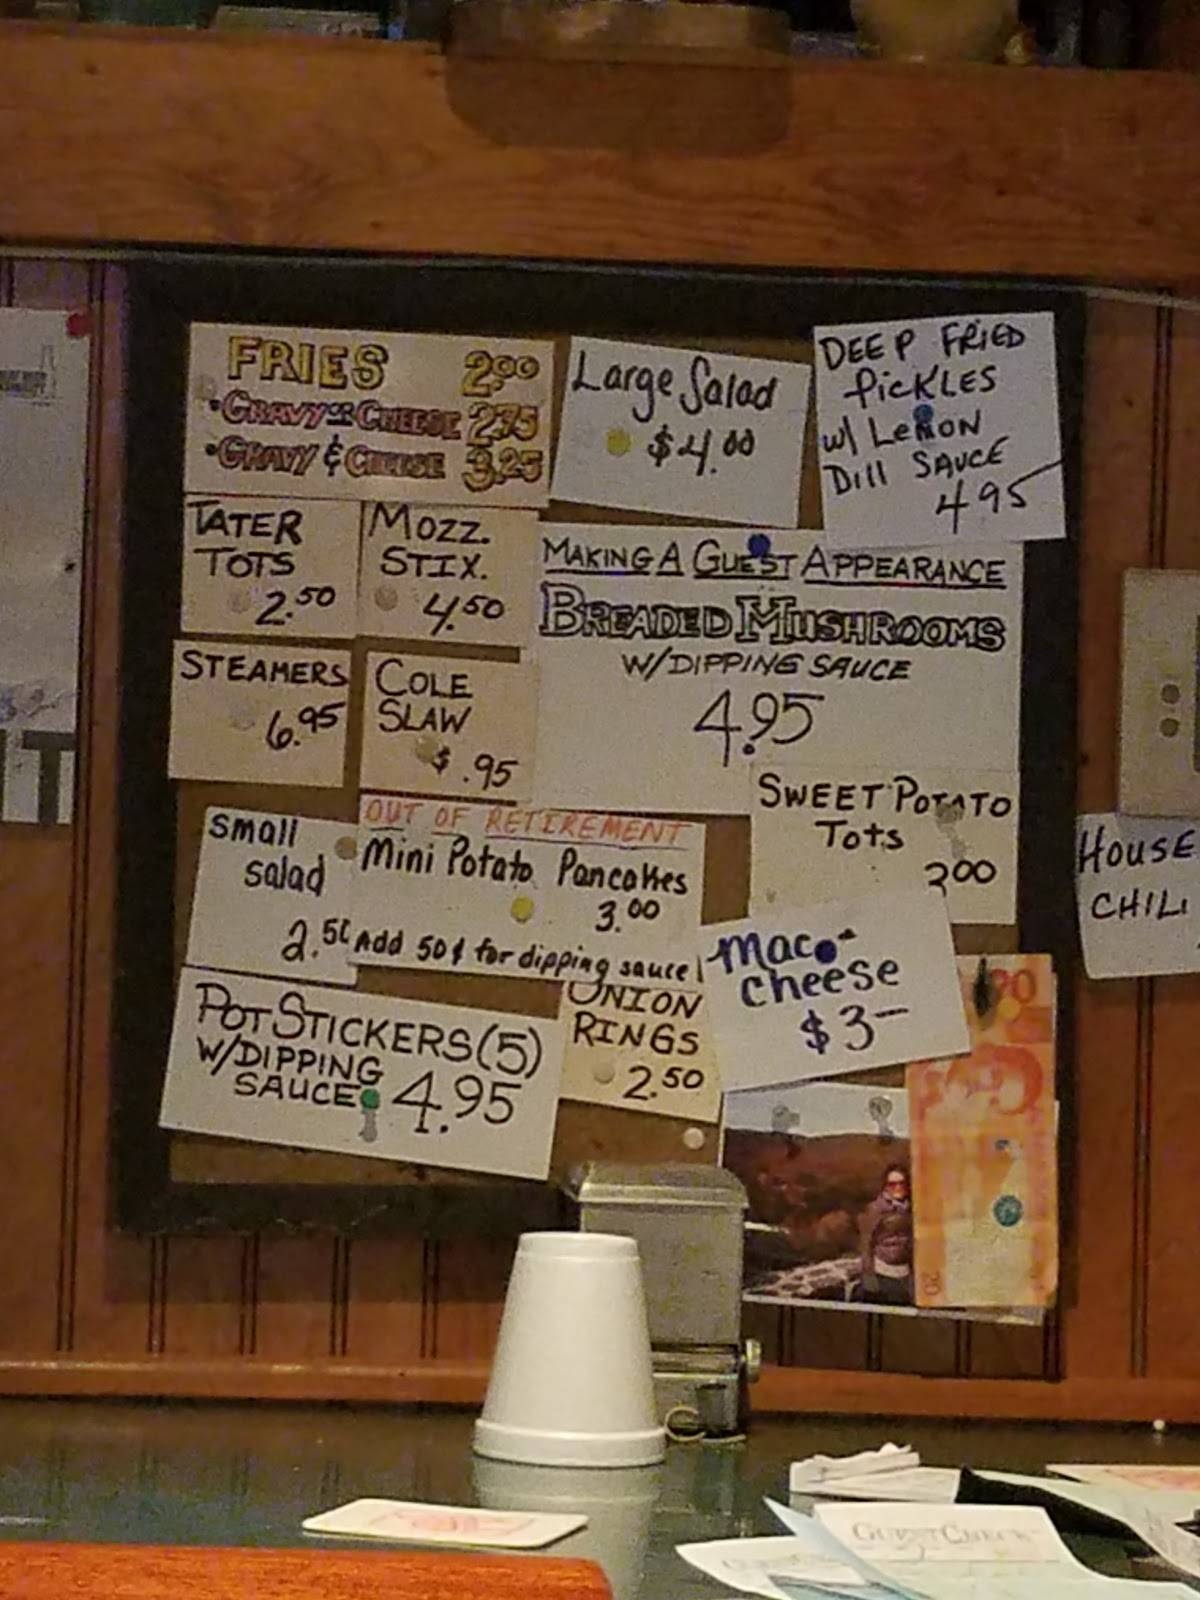 FRIES 2.00
•GRAVY or CHEESE 2.75
•GRAVY & CHEESE 3.25
Large Salad
$4.00
DEEP FRIED
PICKLES
w/ LEMON
Dill SAUCE
4.95
TATER
TOTS
2.50
MOZZ.
STIX.
4.50
MAKING A GUEST APPEARANCE
BREADED MUSHROOMS
W/DIPPING SAUCE
4.95
STEAMERS
6.95
COLE
SLAW
$ .95
SWEET POTATO
Tots
3.00
HOUSE
CHILI
small
salad
2.50
OUT OF RETIREMENT
Mini Potato Pancakes
3.00
Add 50¢ for dipping sauce!
Mac &
cheese
$3-
POT STICKERS (5)
W/DIPPING
SAUCE 4.95
ONION
RINGS
2.50
20
IT
GUEST CHECK